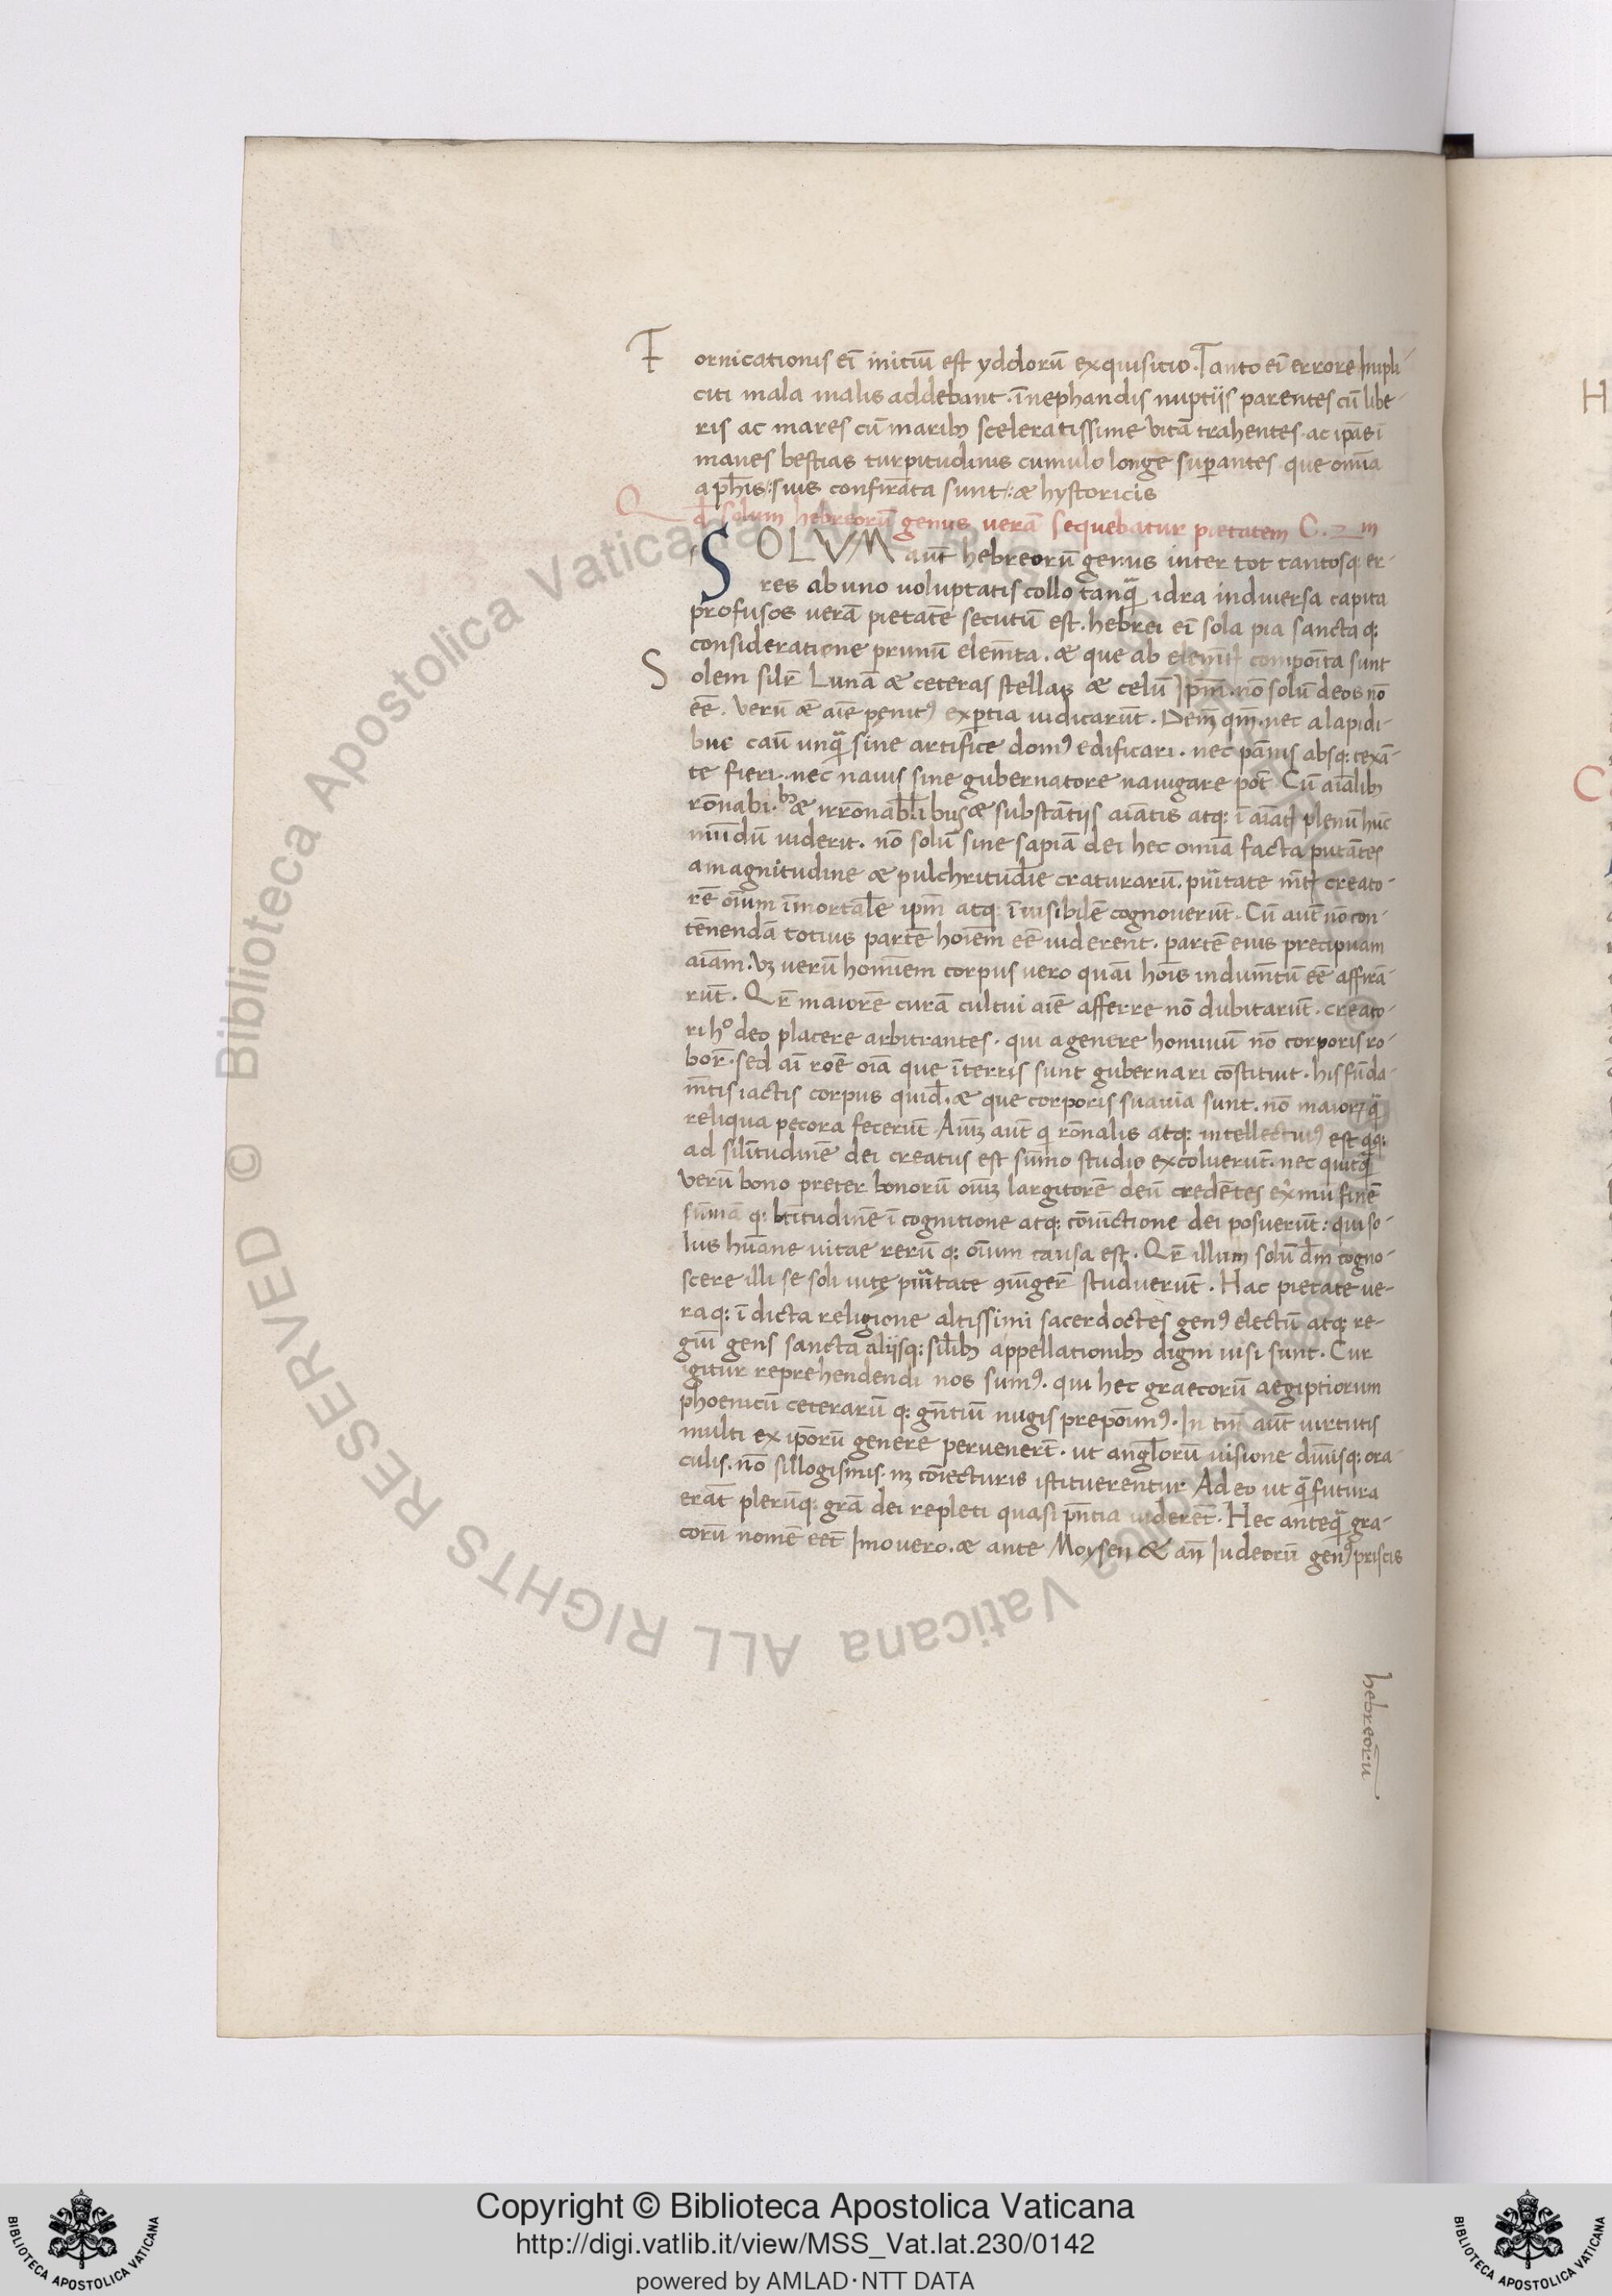 Fornicationis ei̅ initiu̅ est ydoloru̅ exquisitio. Tanto ei̅ errore impli-
citi mala malis addebant. i̅nephandis nuptiis parentes cu̅ libe-
ris ac mares cu̅ marib; sceleratissime vita̅ trahentes. ac ipas i̅
manes bestias turpitudinis cumulo longe superantes que omia
a ph̅is suis confirmata sunt æ hystoricis
Qd̅ solum hebreoru̅ genus vera̅ sequebatur pietatem C. 2m
SOLVM aut̅ hebreoru̅ genus inter tot tantosq: er-
res ab uno voluptatis collo tanq̅ idra in diversa capita
profusos vera̅ pietate̅ secutu̅ est. hebrei ei̅ sola pia sancta q:
consideratione primu̅ elem̅ta. æ que ab elem̅t compoita sunt
Solem silr̅ Luna̅ æ ceteras stellas æ celu̅ ipm̅. no̅ solu̅ deos no̅
ee̅. veru̅ æ aie̅ penit9 exptia iudicarut̅. Dem̅ qm̅. nec a lapidi-
bus cau̅ unq̅ sine artifice dom9 edificari. nec pa̅nis absq: texa̅-
te fieri. nec navis sine gubernatore navigare pot̅ Cu̅ aialib;
ro̅nabi.b; æ irro̅nab̅libus æ substa̅tiis aiatis atq: i̅ aiat plenu̅ hu̅c
mu̅du̅ viderit. no̅ solu̅ sine sapia̅ dei hec omia facta puta̅tes
a magnitudine æ pulchritudi̅e craturaru̅. puitate mt creato-
re̅ oium i̅mortale̅ ipm̅ atq: i̅visibile̅ cognoverut̅. Cu̅ aut̅ no̅ con-
te̅nenda̅ totius parte̅ hoiem ee̅ viderent. parte̅ eius precipuam
aiam. Vz veru̅ homi̅em corpus vero quasi hois indum̅tu̅ ee̅ affirma̅-
rut̅. Qr̅ maiore̅ cura̅ cultui aie̅ afferre no̅ dubitarut̅. creato-
ri ho deo placere arbitrantes. qui a genere hominu̅ no̅ corporis ro-
bor̅. sed ai̅ roe̅ oia̅ que i̅ terris sunt gubernari co̅stituit. his fu̅da-
m̅tis iactis corpus quid. æ que corporis suavia sunt. no̅ maior q̅
reliqua pecora fecerut̅ Aiu̅z aut̅ q ro̅nalis atq: intellectui9 est q:
ad sili̅tudine̅ dei creatus est su̅mo studio excoluerut̅. nec quicq
veru̅ bono preter bonoru̅ oiu̅z largitore̅ deu̅ crede̅tes eximu̅ fine̅
su̅ma̅ q: bti̅tudine̅ i̅ cognitione atq: co̅nictione dei posuerut̅: qui so-
lus hu̅ane vitae reru̅ q: oium causa est. Qr̅ illum solu̅ dm̅ cogno-
scere illi se soli vitę puitate 9iu̅ger̅ studuerut̅. Hac pietate ve-
raq: i̅ dicta religione altissimi sacerdoctes gen9 electu̅ atq: re-
giu̅ gens sancta aliisq: silib; appellationib; digni visi sunt. Cur
igitur reprehendendi nos sum9. qui hec graecoru̅ aegiptiorum
phoenicu̅ ceteraru̅ q: gn̅tiu̅ nugis prepo̅im9. In tm̅ aut̅ virtutis
multi ex iporu̅ genere pervenert̅. ut angl̅oru̅ visione diviisq: ora-
culis. no̅ sillogismis. nz co̅iecturis i̅stituerentur Adeo ut q̅ futura
erat̅ pleru̅q: gra̅ dei repleti quasi pn̅tia videret̅. Hec anteq̅ gra-
coru̅ nome̅ eet̅ Imo vero. æ ante Moysen & an̅ Iudeoru̅ gen9 priscis
hebreoru̅
H
C
Biblioteca Apostolica Vaticana ALL RIGHTS RESERVED ©
Copyright © Biblioteca Apostolica Vaticana
http://digi.vatlib.it/view/MSS_Vat.lat.230/0142
powered by AMLAD·NTT DATA
BIBLIOTECA APOSTOLICA VATICANA
BIBLIOTECA APOSTOLICA VATICANA